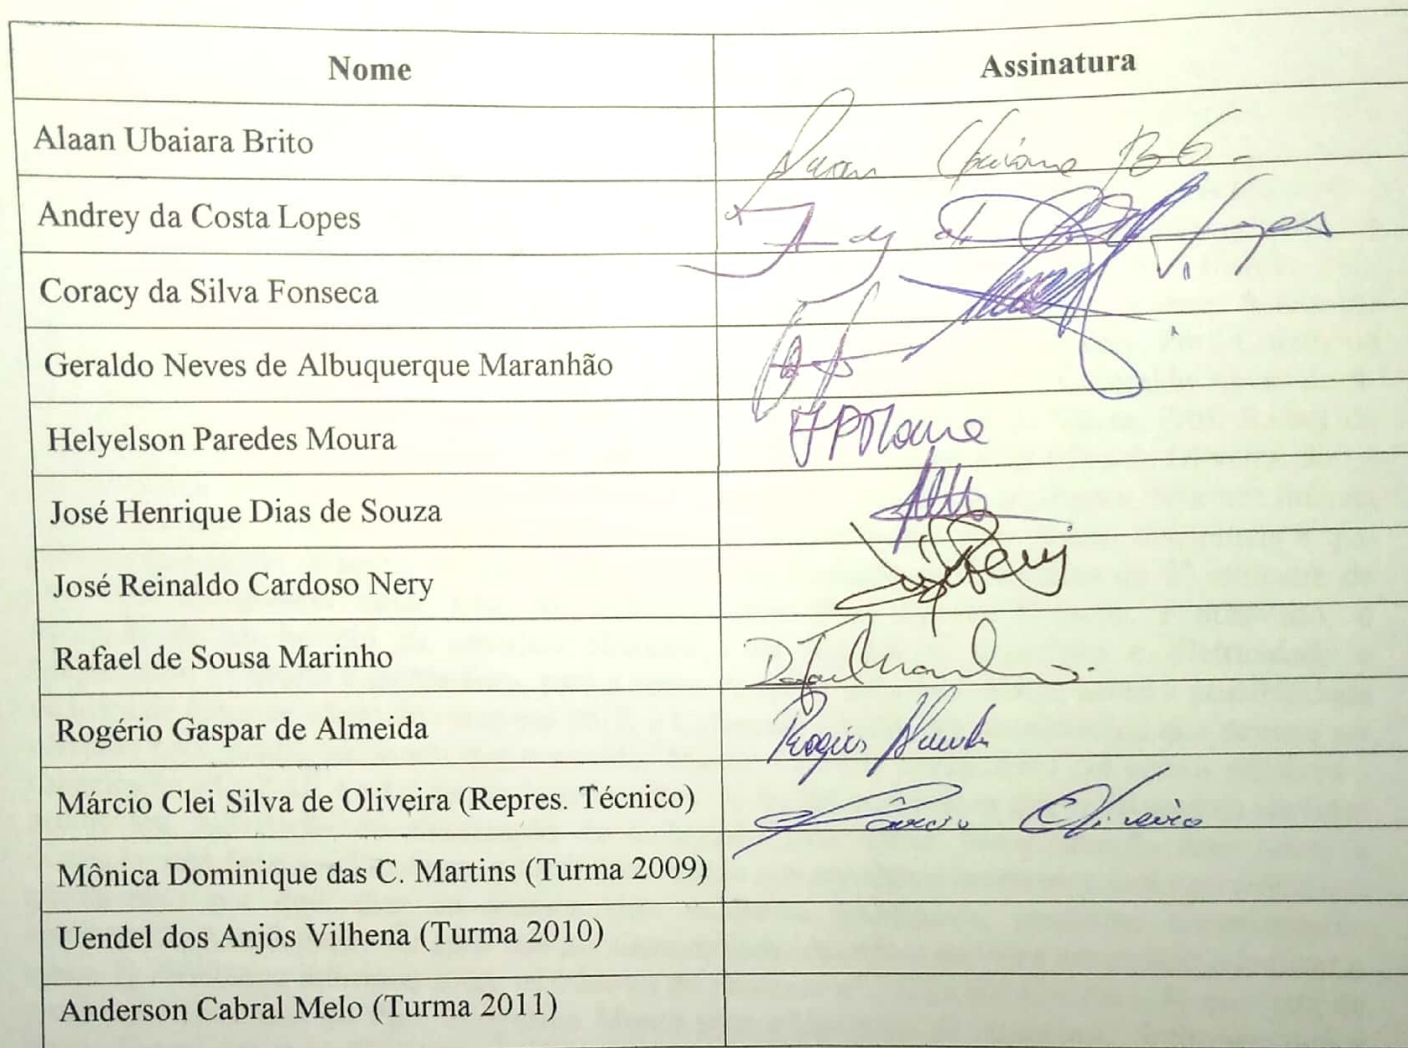 Nome Assinatura
Alaan Ubaiara Brito
Andrey da Costa Lopes Lopes
Coracy da Silva Fonseca
Geraldo Neves de Albuquerque Maranhão
Helyelson Paredes Moura HPMoura
José Henrique Dias de Souza
José Reinaldo Cardoso Nery Nery
Rafael de Sousa Marinho Rafael
Rogério Gaspar de Almeida
Márcio Clei Silva de Oliveira (Repres. Técnico) Márcio Oliveira
Mônica Dominique das C. Martins (Turma 2009)
Uendel dos Anjos Vilhena (Turma 2010)
Anderson Cabral Melo (Turma 2011)